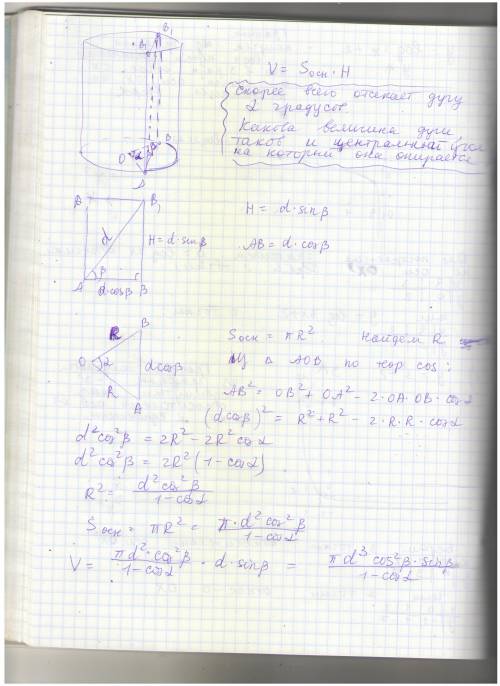 V = Sосн · H
Скорее всего отсекает дугу
α градусов
Какова величина дуги,
таков и центральный угол
на который она опирается
B₁
O α B
A
B₁
d
H = d·sinβ
H = d·sinβ
AB = d·cosβ
A β B
d cosβ
R B
O α d cosβ
R
A
Sосн = πR² Найдем R
Из Δ AOB по теор cos:
AB² = OB² + OA² - 2·OA·OB·cosα
(d cosβ)² = R² + R² - 2·R·R·cosα
d²cos²β = 2R² - 2R²cosα
d²cos²β = 2R²(1-cosα)
R² = d²cos²β / 1-cosα
Sосн = πR² = π·d²cos²β / 1-cosα
V = πd²·cos²β / 1-cosα · d·sinβ = πd³cos²β·sinβ / 1-cosα